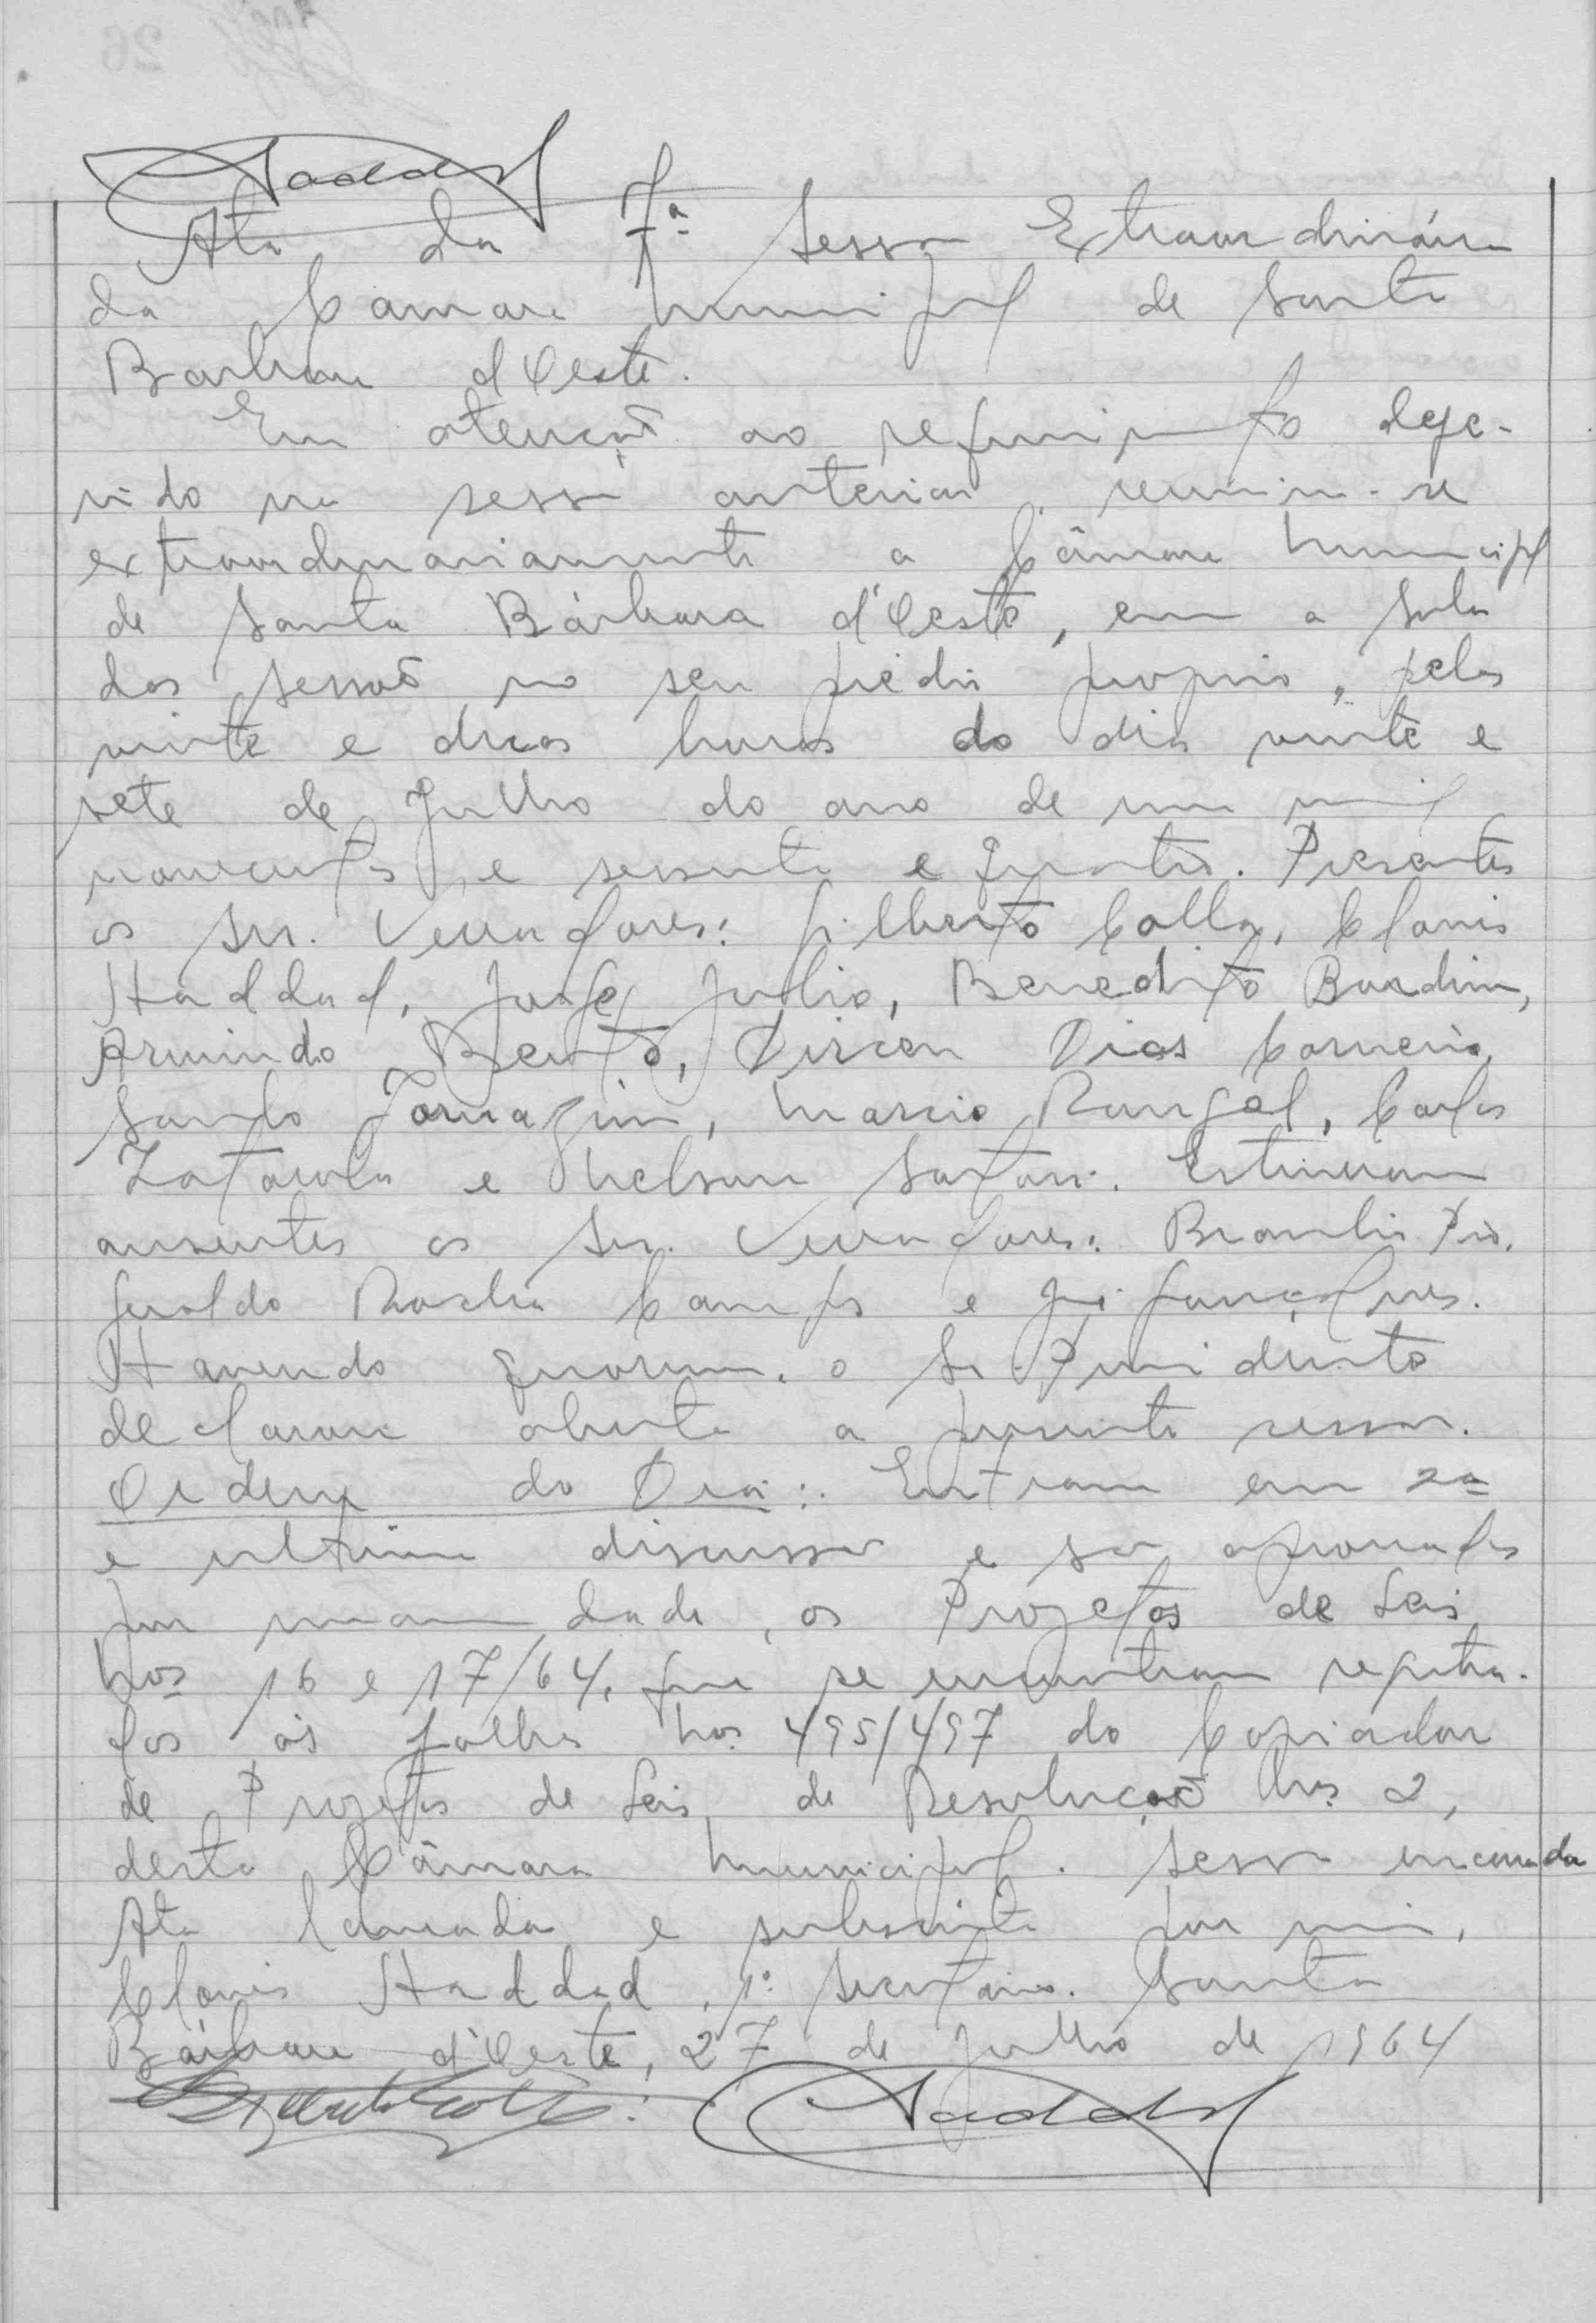 Haddad
Ata da 7ª Sessão Extraordinária
da Câmara Municipal de Santa
Barbara d'Oeste.
Em atenção ao requerimento defe-
rido na sessão anterior, reuniu-se
extraordinariamente a Câmara Municipal
de Santa Bárbara d'Oeste, em a sala
das sessões no seu prédio proprio, pelas
vinte e duas horas do dia vinte e
sete de Julho do ano de um mil
novecentos e sessenta e quatro. Presentes
os Srs. Vereadores: Gilberto Colla, Clovis
Haddad, José Julio, Benedito Bordim,
Armindo Bento, Dirceu Dias Carneiro,
Santo Tomazim, Marcio Rangel, Carlos
Zatarola e Nelson Satari. Estiveram
ausentes os Srs. Vereadores: Braulio Pio,
Geraldo Rocha Campos e
Havendo quorum, o Sr. Presidente
declarou aberta a presente sessão.
Ordem do Dia: Entram em 2a
e ultima discussão e são aprovados
por unanimidade, os Projetos de Leis
Nos 16 e 17/64, que se encontram registra-
dos às folhas Nos 495/497 do Copiador
de Projetos de Leis, de Resolução Nos 2,
desta Câmara Municipal. Sessão encerrada
Ata lavrada e subscrita por mim,
Clovis Haddad, 1º Secretario. Santa
Bárbara d'Oeste, 27 de Julho de 1964
Haddad